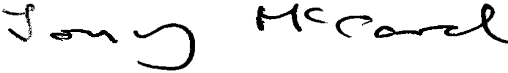 Tony McCard